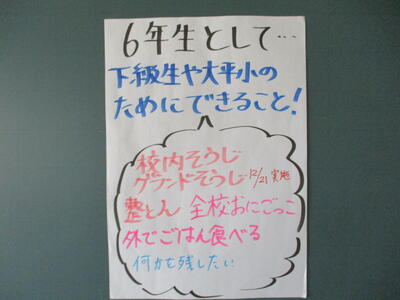 6年生として…
下級生や大平小の
ためにできること!
校内そうじ
グランドそうじ…12/21実施
整とん 全校おにごっこ
外でごはん食べる
何かを残したい